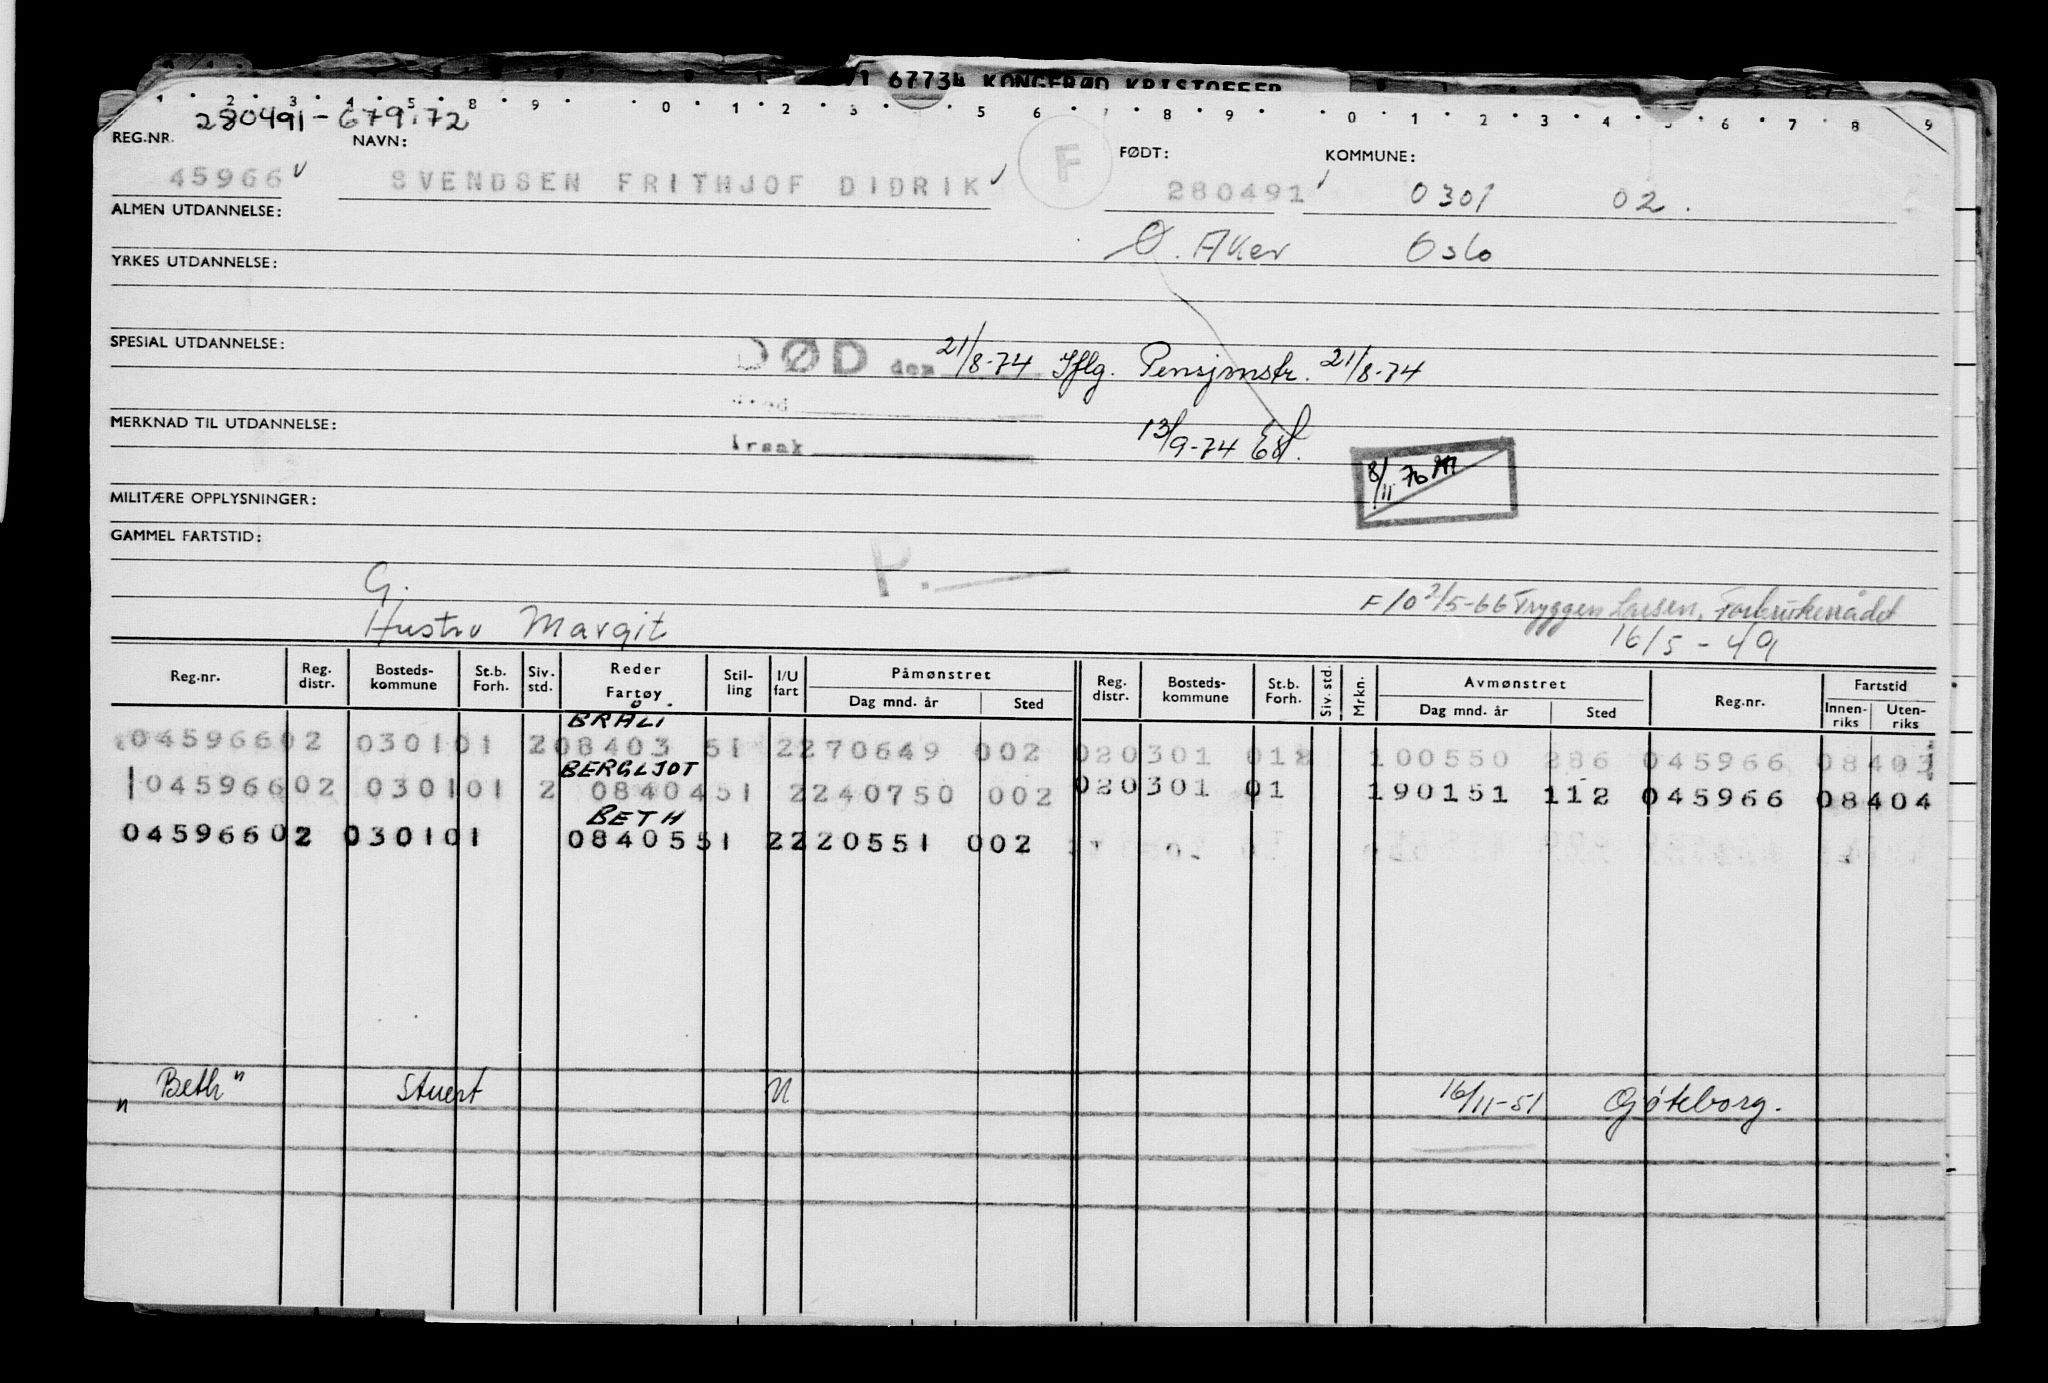 67734 KONGERØD KRISTOFFER
1 2 3 4 5 8 9 0 1 2 3 5 6 7 8 9 0 1 2 3 4 5 6 7 8 9
280491-679.72
REG.NR. NAVN: FØDT: KOMMUNE:
45966 SVENDSEN FRITHJOF DIDRIK F 280491 0301 02.
ALMEN UTDANNELSE:
Ø. Aker Oslo
YRKES UTDANNELSE:
SPESIAL UTDANNELSE:
DØD den 21/8-74 Iflg. Pensjonstr. 21/8-74
MERKNAD TIL UTDANNELSE:
årsak 13/9-74
8/11 76
MILITÆRE OPPLYSNINGER:
GAMMEL FARTSTID:
P.
G.
F/O 2/5-66 Tryggen Larsen, Forbrukerrådet
Hustru Margit 16/5-49
Reg.nr. Reg. distr. Bosteds-kommune St.b. Forh. Siv. std. Reder Fartøy Stil-ling I/U fart Påmønstret Dag mnd. år Sted Reg. distr. Bosteds-kommune St.b. Forh. Siv. std. Mrkn. Avmønstret Dag mnd. år Sted Reg.nr. Fartstid Innen-riks Uten-riks
BRÅLI
04596602 030101 208403 51 2270649 002 020301 012 100550 286 045966 08403
BERGLJOT
04596602 030101 2 0840451 2240750 002 020301 01 190151 112 045966 08404
BETH
04596602 030101 0840551 2220551 002
"Beth" Stuert U 16/11-51 Gøteborg.